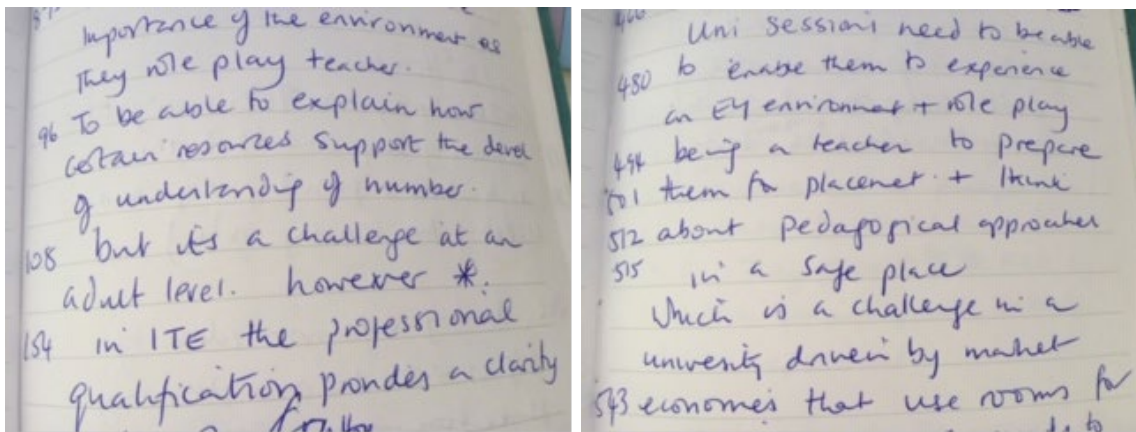 Importance of the environment as
they role play teacher.
96 To be able to explain how
certain resources support the devel
of understanding of number.
108 but its a challenge at an
adult level. however *.
154 in ITE the professional
qualification provides a clarity
Uni sessions need to be able
480 to enable them to experience
an EY environment + role play
494 being a teacher to prepare
501 them for placement + think
512 about pedagogical approaches
515 in a safe place
which is a challenge in a
university driven by market
543 economies that use rooms for
to